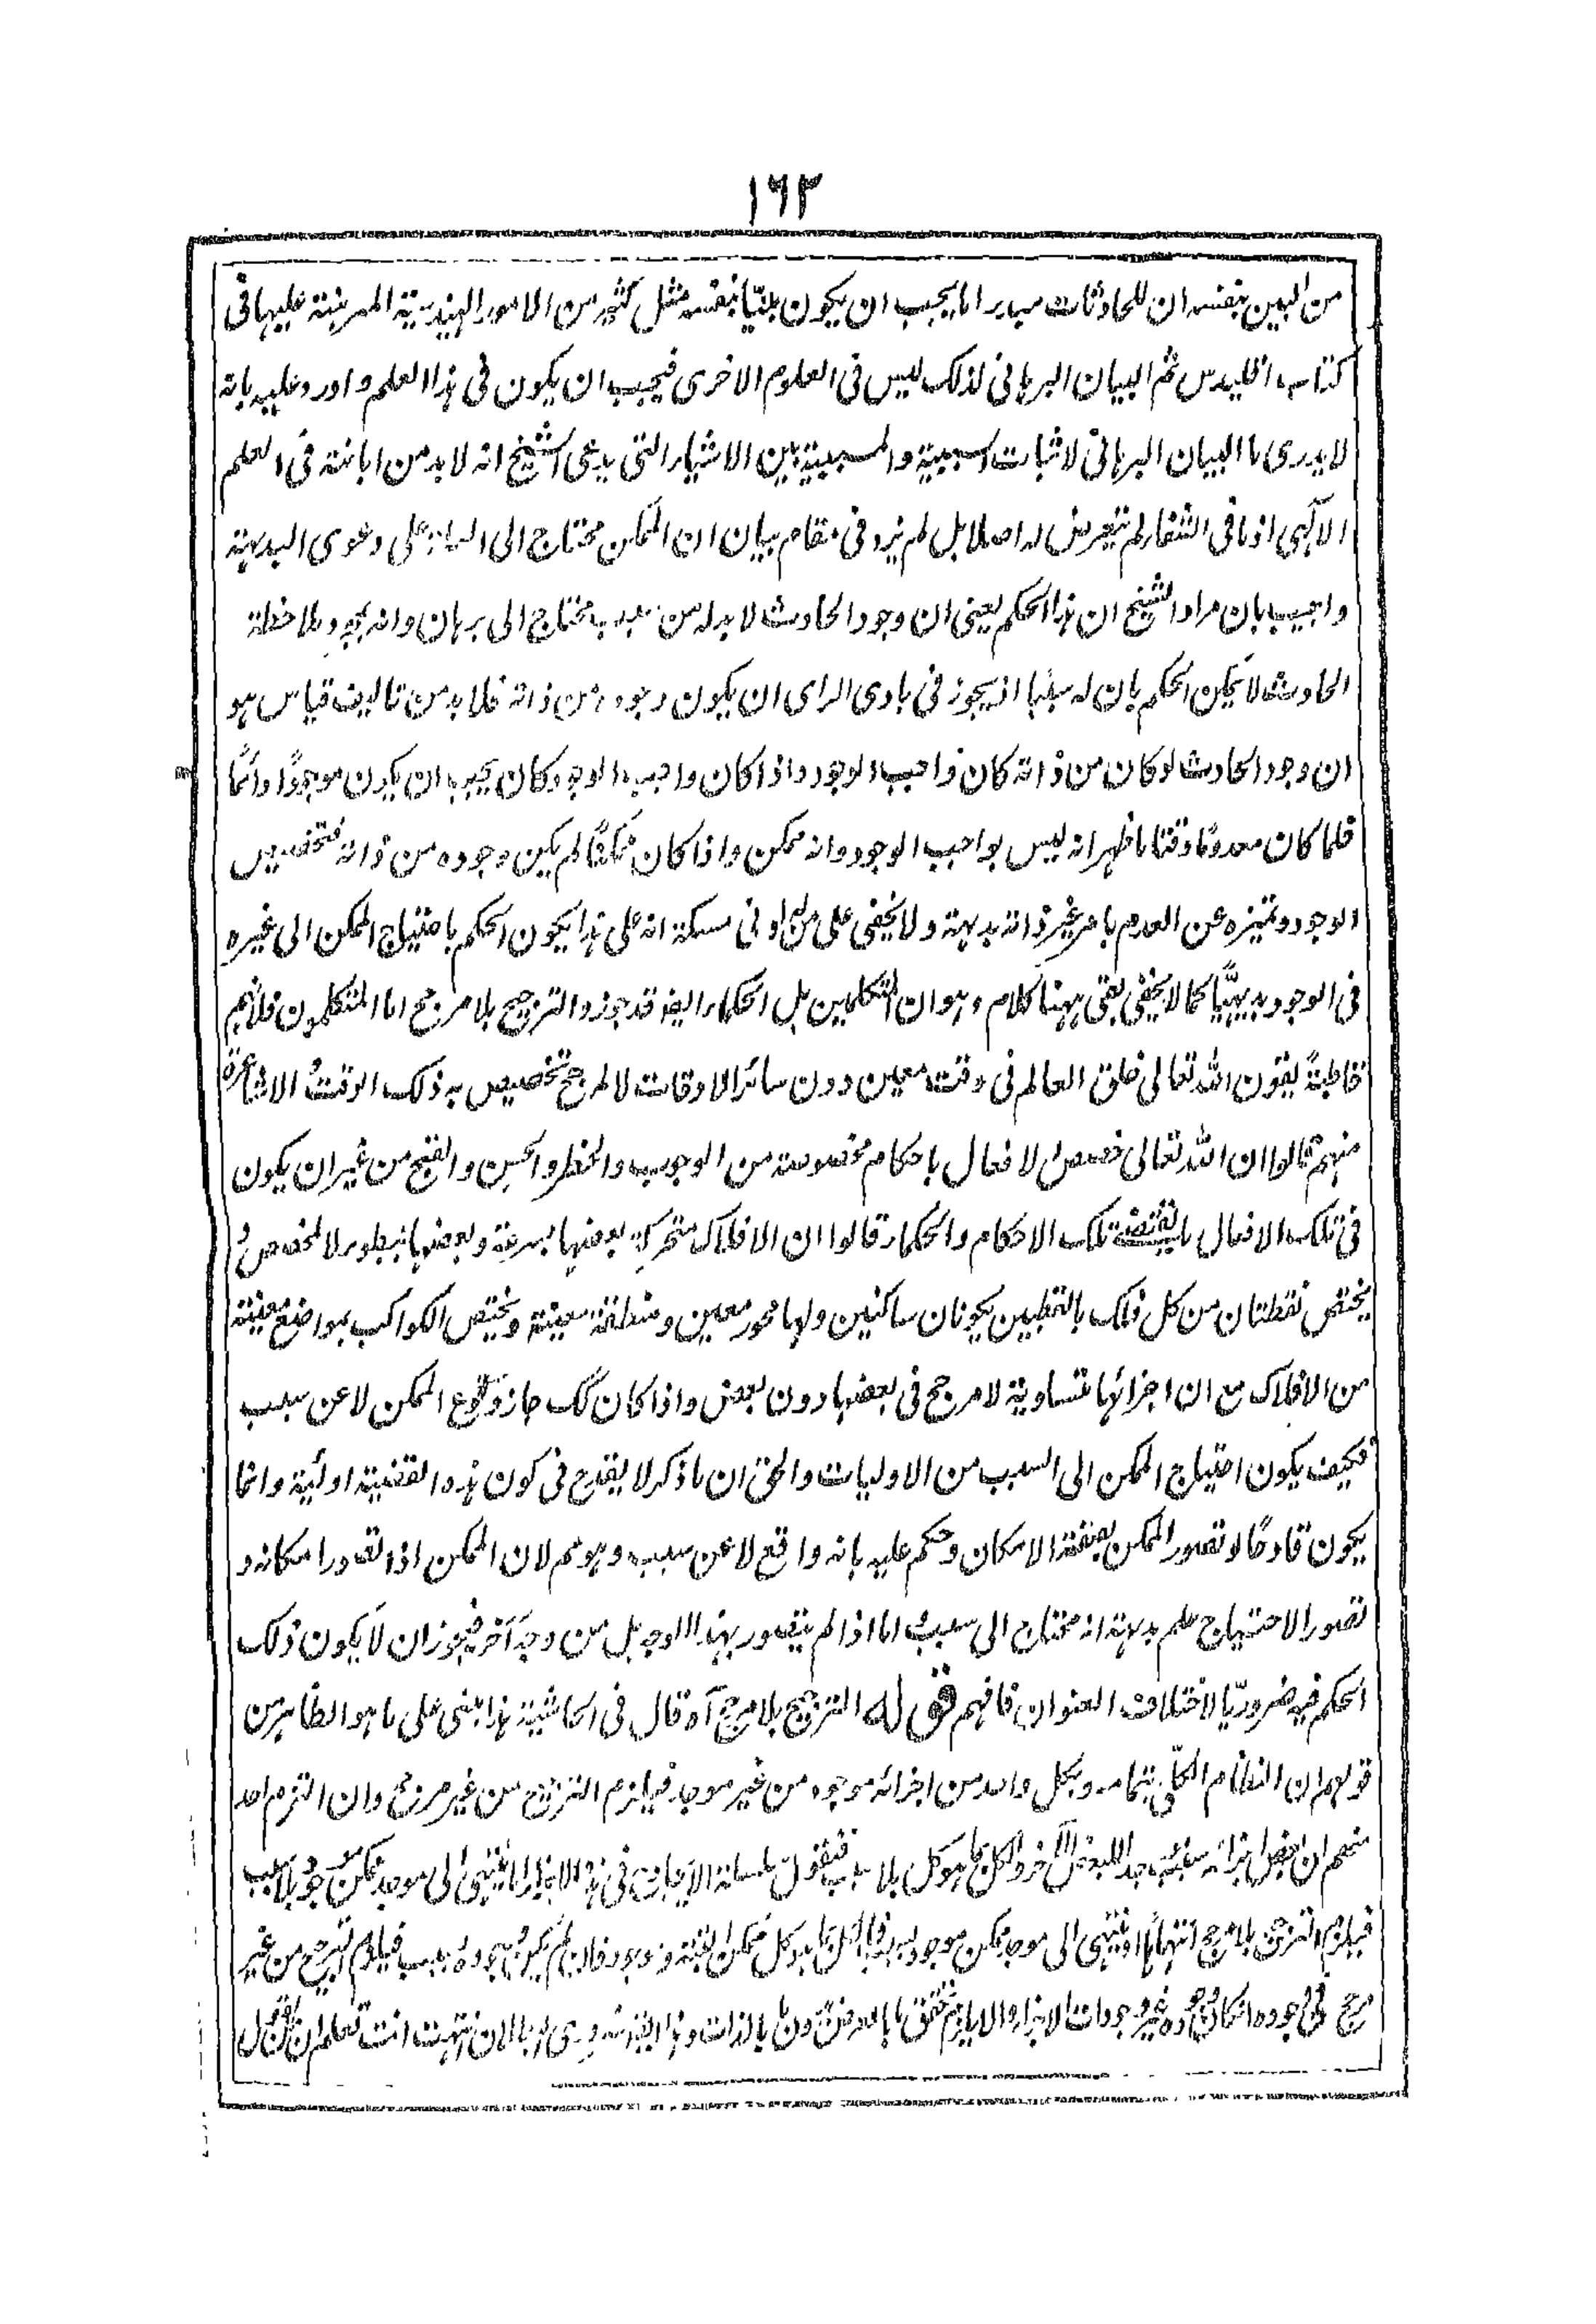 ١٦٣
من البين بنفسه ان للحادثات مبدءا ما يجب ان يكون بينّا بنفسه مثل كثير من الامور الهندسية المبرهنة عليها فى
كتاب اقليدس ثم البيان البرهانى لذلك ليس فى العلوم الاخرى فيجب ان يكون فى هذا العلم و اورد عليه بانه
لا يدرى ما البيان البرهانى لاثبات السببية والمسببية بين الاشياء التى يدعى الشيخ انه لا بد من ابانته فى العلم
الآلهى اذ ما فى الشفاء لم يتعرض له اصلا بل لم يزد فى مقام بيان ان الممكن محتاج الى العلة على دعوى البديهة
واجيب بان مراد الشيخ ان هذا الحكم يعنى ان وجود الحادث لا بد له من سبب محتاج الى برهان وانه بمجرد ملاحظة
الحادث لا يمكن الحكم بان له سببا اذ يجوز فى بادى الراى ان يكون وجوده من ذاته فلا بد من تاليف قياس هو
ان وجود الحادث لو كان من ذاته كان واجب الوجود واذا كان واجب الوجود كان يجب ان يكون موجودًا دائمًا
فلما كان معدومًا وقتا ما ظهر انه ليس بواجب الوجود وانه ممكن واذا كان ممكنًا لم يكن وجوده من ذاته فتخصيص
الوجود وتميزه عن العدم بامر غير ذاته بديهة ولا يخفى على من له ادنى مسكة انه على هذا يكون الحكم باحتياج الممكن الى غيره
فى الوجود بديهيًّا كما لا يخفى بقى ههنا كلام وهو ان المتكلمين بل الحكماء ايضا قد جوزوا الترجيح بلا مرجح اما المتكلمون فلانهم
قاطبةً يقولون الله تعالى خلق العالم فى وقت معين دون سائر الاوقات لا لمرجح تخصيص به ذلك الوقت والاشاعرة
منهم قالوا ان الله تعالى خصص الافعال باحكام مخصوصة من الوجوب والحظر والحسن والقبح من غير ان يكون
فى تلك الافعال ما يقتضى تلك الاحكام والحكماء قالوا ان الافلاك متحركة بعضها بسرعة وبعضها ببطوء لا لمخصص و
يختص نقطتان من كل فلك بالقطبين يكونان ساكنين ولها محور معين ومنطقة معينة ويختص الكواكب بمواضع معينة
من الافلاك مع ان اجزائها متساوية لا مرجح فى بعضها دون بعض واذا كان كك جاز وقوع الممكن لا عن سبب
فكيف يكون احتياج الممكن الى السبب من الاوليات والحق ان ما ذكر لا يقدح فى كون هذه القضية اولية وانما
يكون قادحًا لو تصور الممكن بصفة الامكان وحكم عليه بانه واقع لا عن سبب وهو مم لان الممكن اذا تصور امكانه و
تصور الاحتياج علم بديهة انه محتاج الى سبب اما اذا لم يتصور بهذا الوجه بل من وجه آخر فيجوز ان لا يكون ذلك
الحكم فيه ضروريّا لاختلاف العنوان فافهم قوله الترجيح بلا مرجح آه قال فى الحاشية هذا مبنى على ما هو الظاهر من
قولهم ان النظام الكلّى بتمامه وبكل واحد من اجزائه موجود من غير موجد فيلزم الترجيح من غير مرجح وان التزم احد
منهم ان بعض اجزائه سبب موجد للبعض الآخر والكل بما هو كل بلا سبب فنقول سلسلة الايجاد فى هذه الاجزاء اما ينتهى الى موجد ممكن موجود بلا سبب
فيلزم الترجيح بلا مرجح انتهاءً او ينتهى الى موجد ممكن موجود فان لم يكن وجوده بسبب فيلزم الترجيح من غير
مرجح فى وجوده غير وجودات الاجزاء والا يلزم تحقق ما بالعرض دون ما بالذات وهذا ايضا انتهت انت تعلم ان